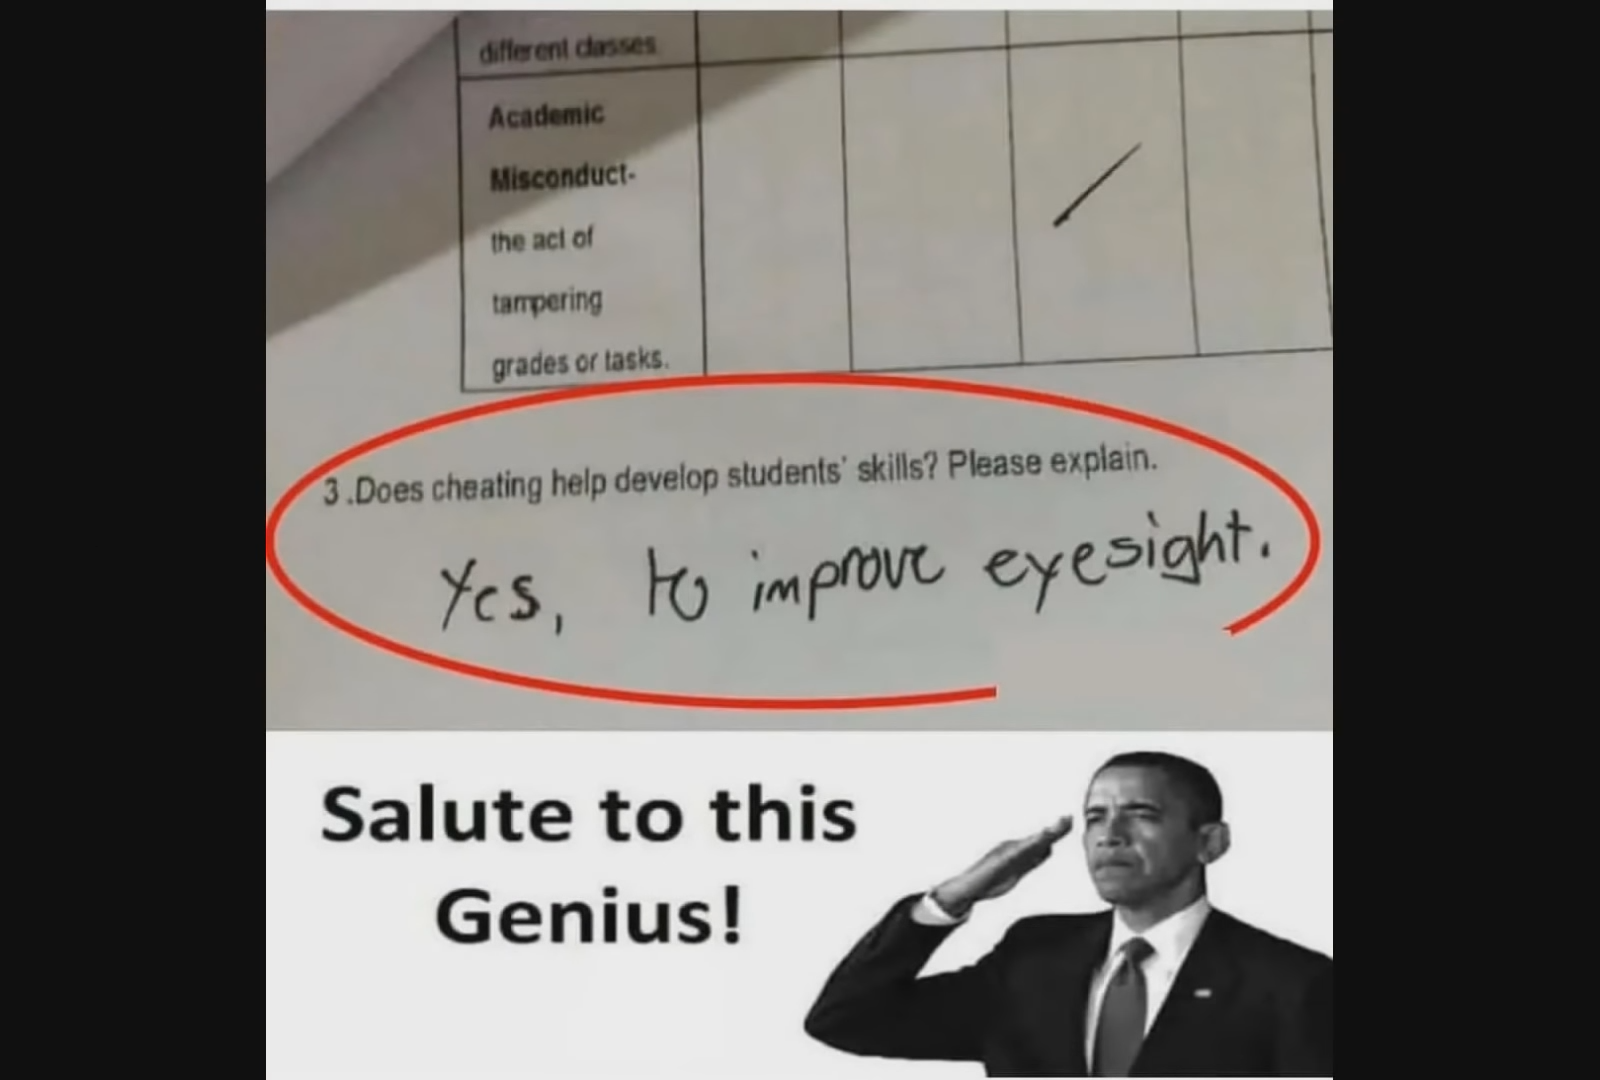 different classes
Academic
Misconduct-
the act of
tampering
grades or tasks.
3 .Does cheating help develop students' skills? Please explain.
Yes, to improve eyesight.
Salute to this
Genius!